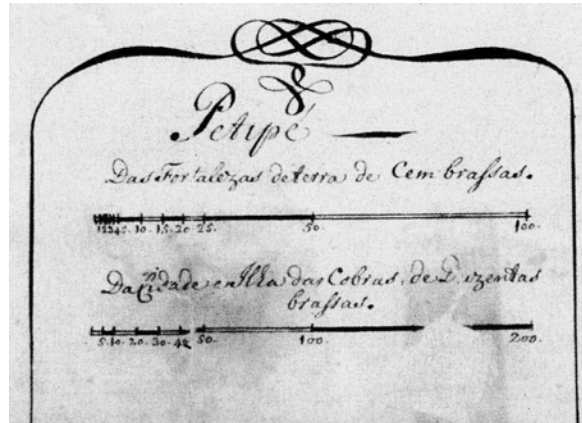 Petipé
Das Fortalezas de terra de Cem brassas.
1 2 3 4 5. 10. 15. 20. 25. 50. 100.
Da Cidade en Ilha das Cobras, de Duzentas
brassas.
5. 10. 20. 30. 40. 50. 100. 200.